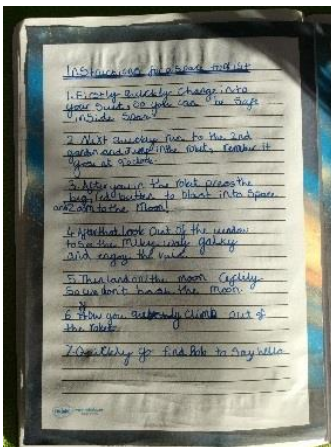 Instructions for a space tourist
1. Firstly quickly change into
your suit, so you can be safe
inside space
2. Next quickly run to the 2nd
and jump in the roket, remember it
goes at 9 oclock.
3. After you in the roket press the
big red button to blast into space
and zoom to the Moon!
4. After that look out of the window
to see the Milky way galaxy
and enjoy the
5. Then land on the moon
So we don't the moon.
6. Now you climb out of
the roket
7. Quickly go find Rob to say hello